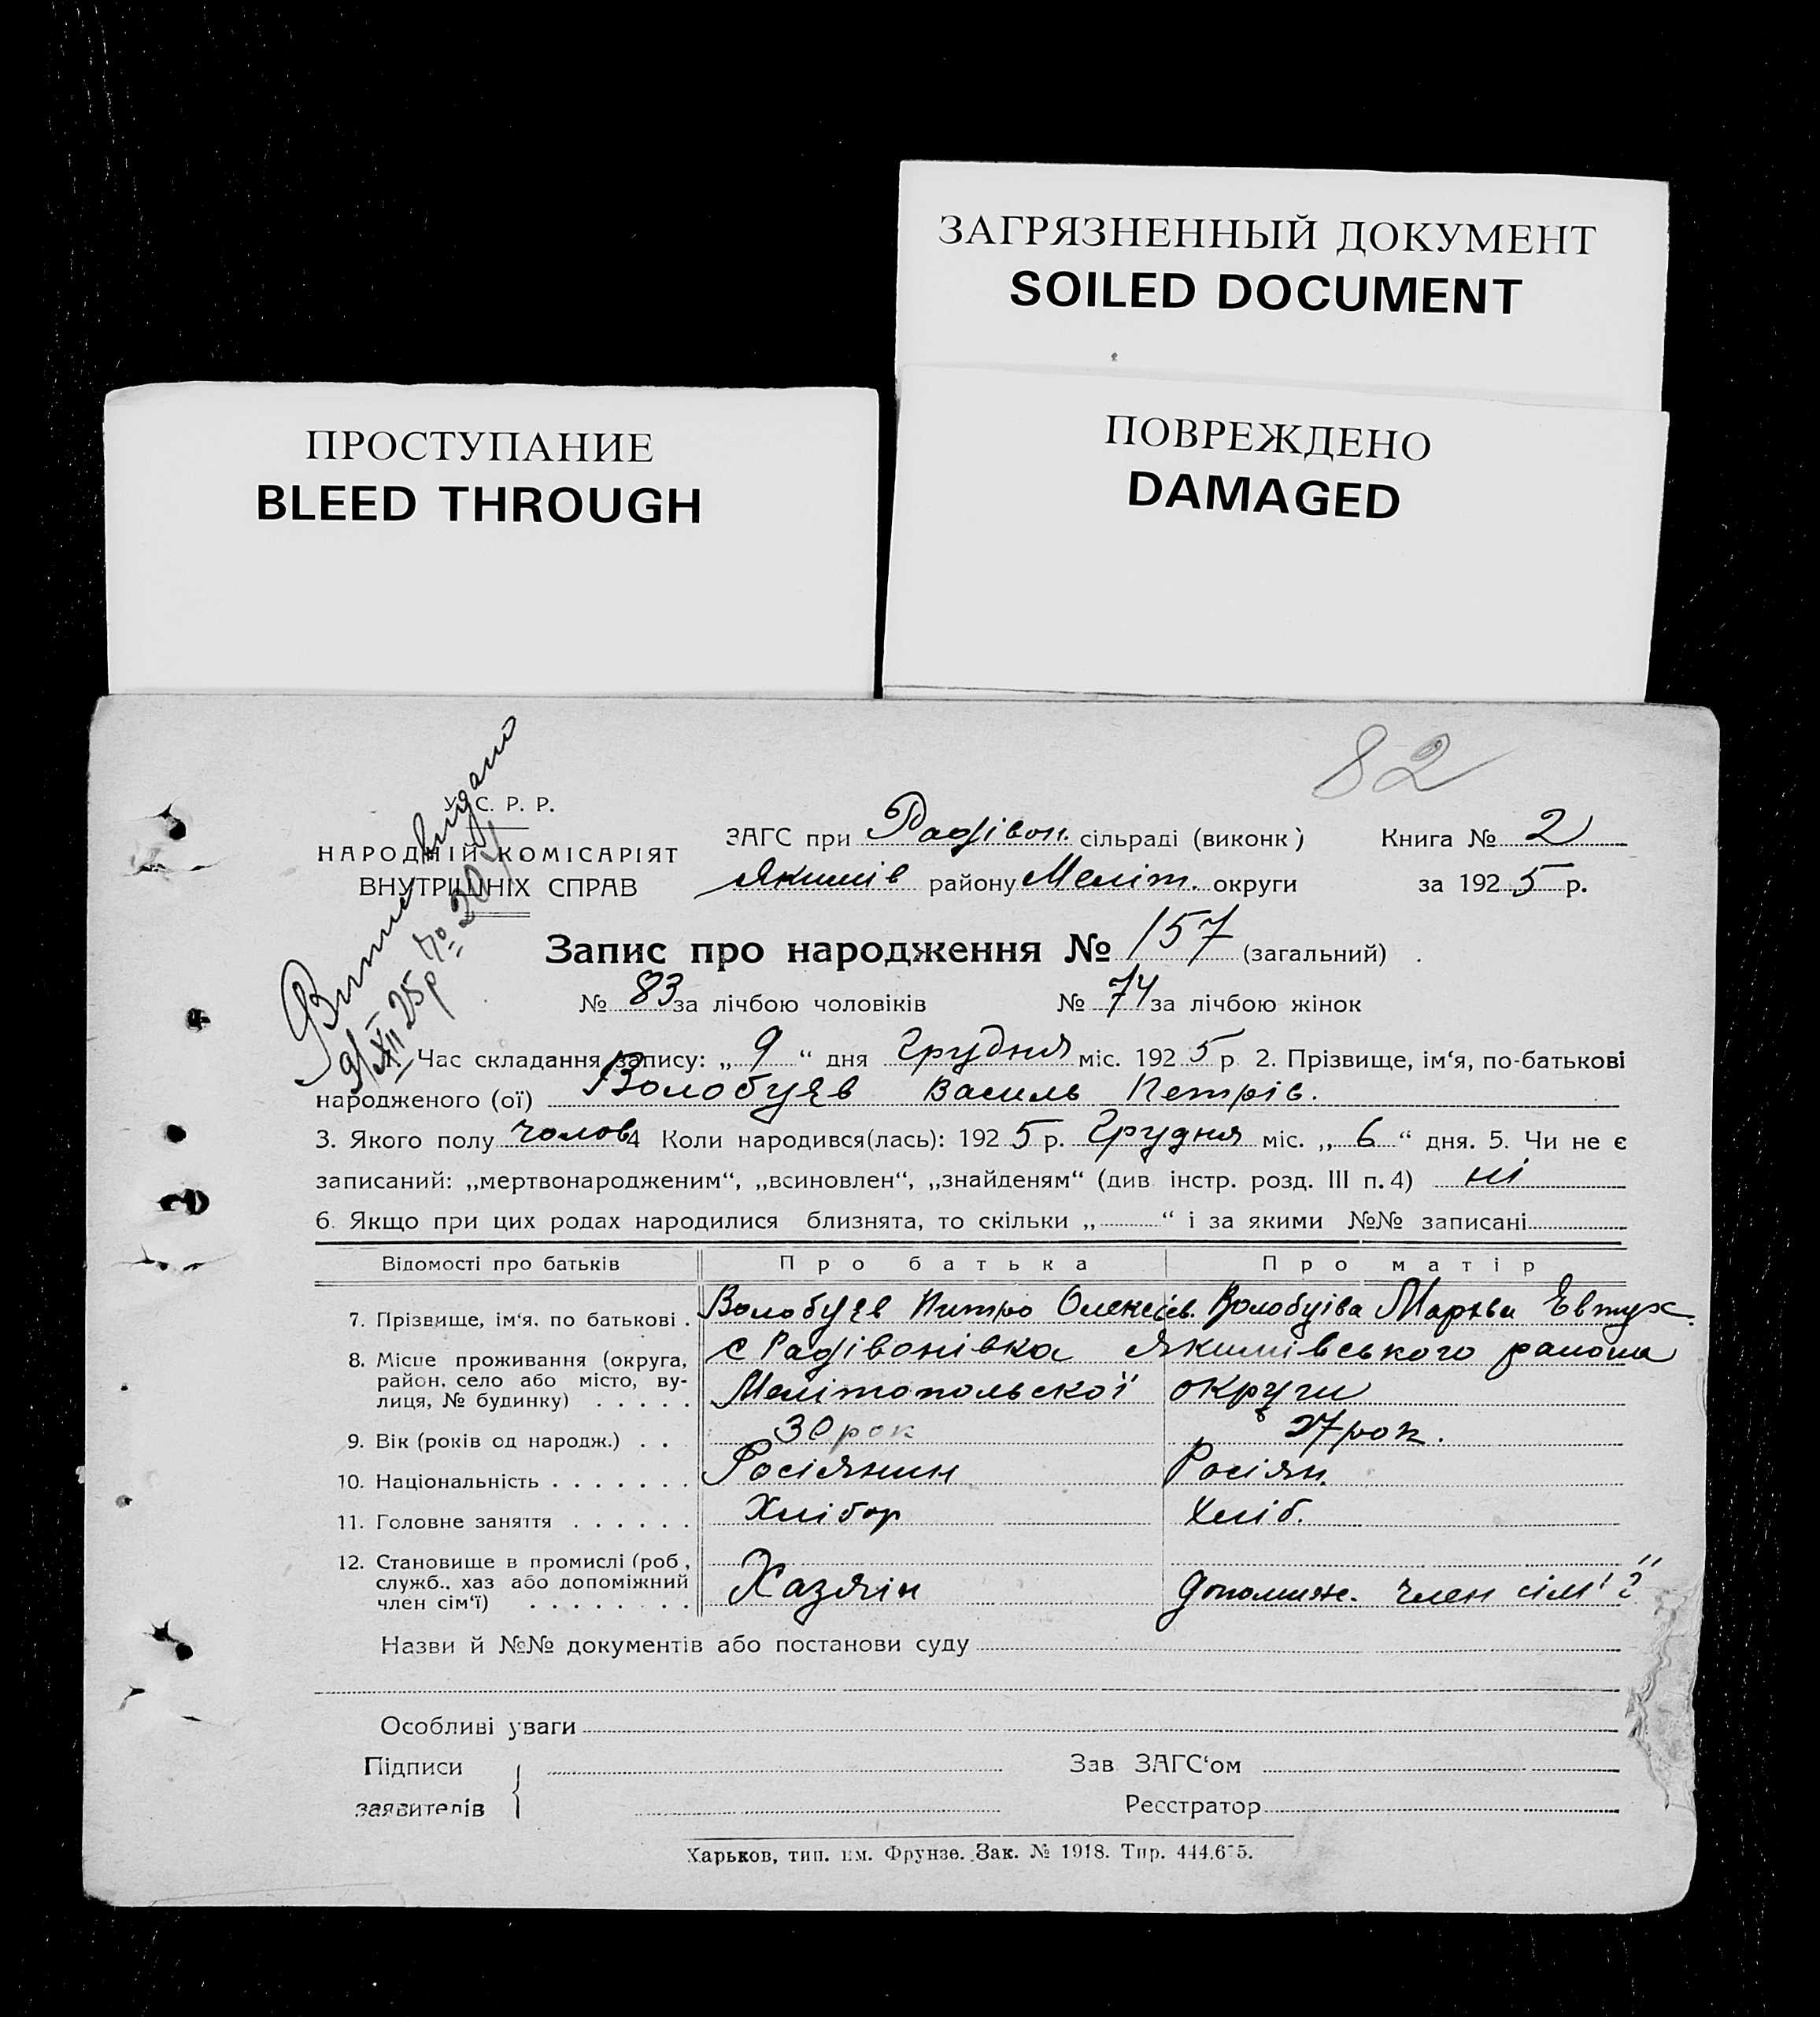 ЗАГРЯЗНЕННЫЙ ДОКУМЕНТ
SOILED DOCUMENT
ПРОСТУПАНИЕ
BLEED THROUGH
ПОВРЕЖДЕНО
DAMAGED
82
У. С. Р. Р.
НАРОДНІЙ КОМІСАРІЯТ
ВНУТРІШНІХ СПРАВ
видано
9/XII 25р № 20
ЗАГС при Радівон. сільраді (виконк) Книга № 2
Якимів району Меліт. округи за 1925 р.
Запис про народження № 157 (загальний)
№ 83 за лічбою чоловіків № 74 за лічбою жінок
Час складання запису: „ 9 “ дня Грудня міс. 1925 р 2. Прізвище, ім‘я, по-батькові
народженого (ої) Волобуєв Василь Петрів.
3. Якого полу чолов 4 Коли народився(лась): 1925 р. Грудня міс. „ 6 “ дня. 5. Чи не є
записаний: „мертвонародженим“, „всиновлен“, „знайденям“ (див. інстр. розд. III п. 4) ні
6. Якщо при цих родах народилися близнята, то скільки „ “ і за якими №№ записані
Відомості про батьків Про батька Про матір
7. Прізвище, ім‘я. по батькові . Волобуєв Питро Олексієв. Волобуіва Марьва Евтух.
8. Місце проживання (округа, с Радівонівка Якимівського района
район, село або місто, ву-
лиця, № будинку) . . . . . Мелітопольскої округи
9. Вік (років од народж.) . . 30 рок 27 рок.
10. Національність . . . . . . . Росіянин Росіян.
11. Головне заняття . . . . . . Хлібор Хліб.
12. Становище в промислі (роб,
служб., хаз або допоміжний Хазяін допомиж. член сім'ї
член сім‘ї) . . . . . . . .
Назви й №№ документів або постанови суду
Особливі уваги
Підписи Зав ЗАГС‘ом
заявителів Реєстратор
Харьков, тип. им. Фрунзе. Зак. № 1918. Тир. 444.675.